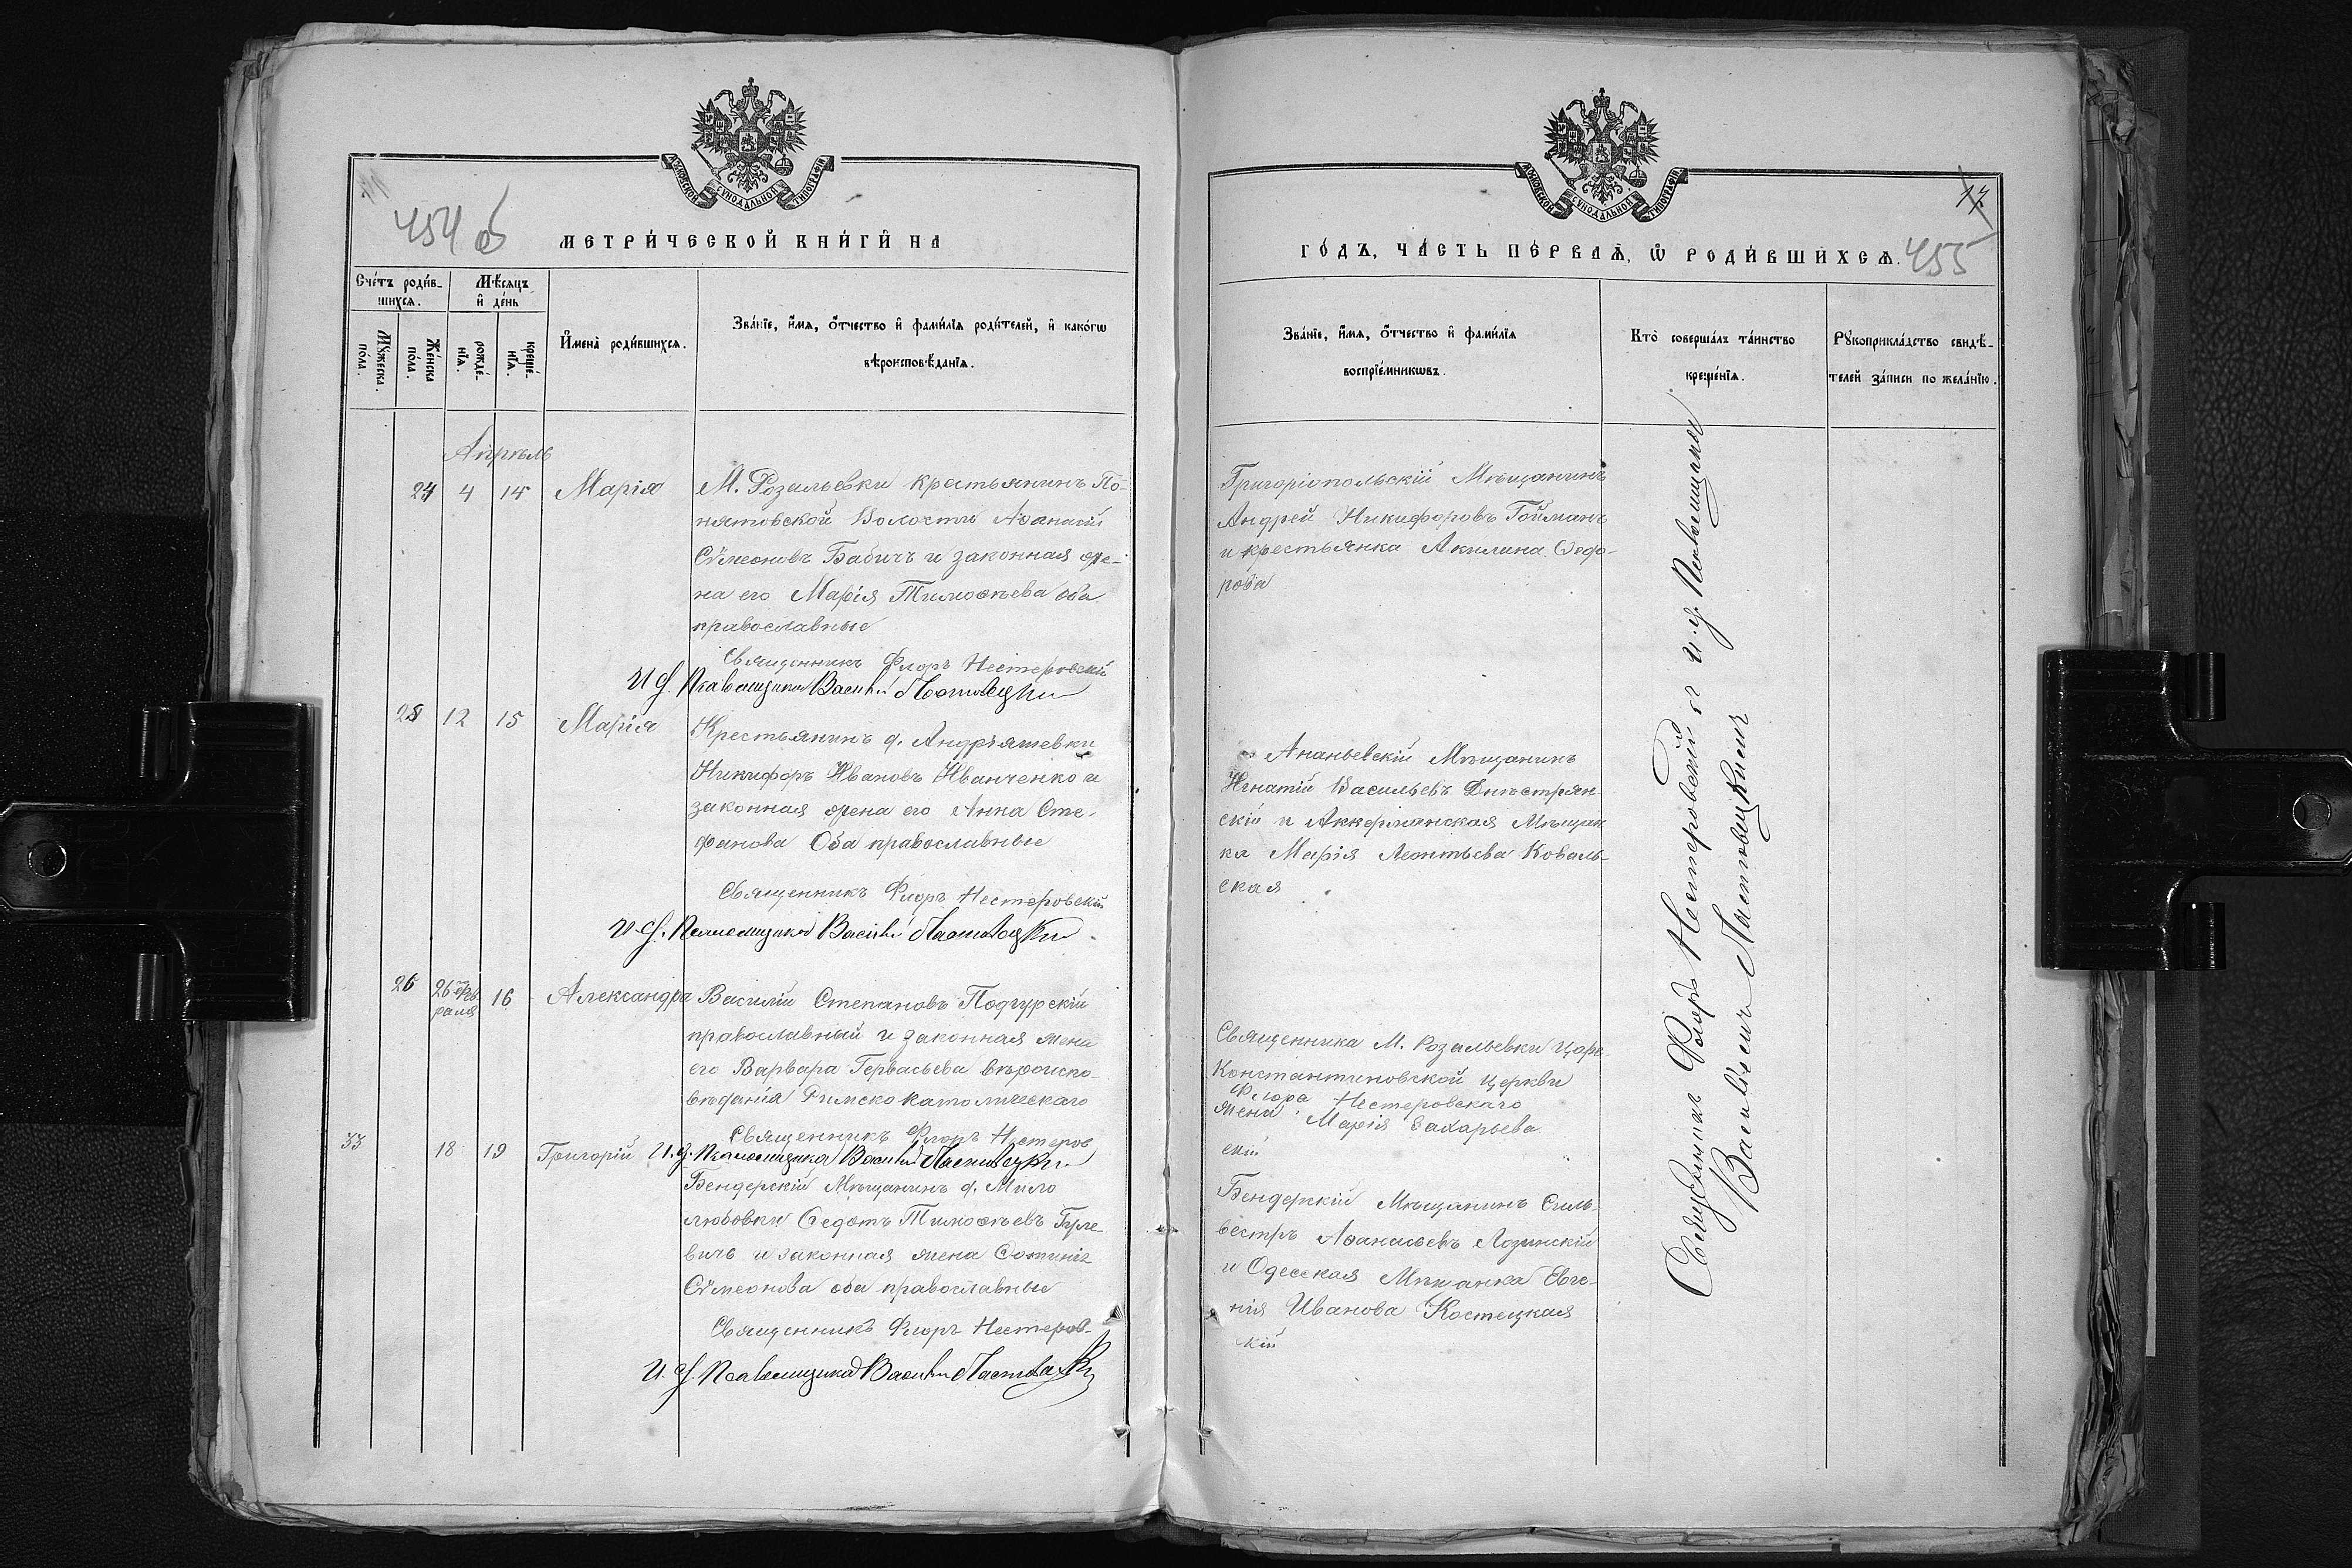 МОСКОВСКОЙ СѴНОДАЛЬНОЙ ТИПОГРАФІИ
454 об
МЕТРИ́ЧЕСКОЙ КНИ́ГИ НА
Сче́тъ роди́в-
шихся.
Мѣ́сяцъ
и де́нь
Имена̀ роди́вшихся.
Зва́нїе, и́мя, о́тчество и фами́лїя роди́телей, и како́гѡ
вѣроисповѣ́данїя.
Мꙋ́жеска
по́ла.
Же́нска
по́ла.
рожде́-
нїя.
креще́-
нїя.
Апрѣль
24 4 14 Марія М. Розальевки крестьянинъ По-
нятовской Волости Аѳанасій
Сѵмеоновъ Бабичъ и законная же-
на его Марія Тимоѳѣева оба
православные
Священникъ Флоръ Нестеровскій
И. д. Псаломщика Василій Ластовецкій
25 12 15 Марія Крестьянинъ д. Андріяшевки
Никифоръ Ивановъ Иванченко и
законная жена его Анна Сте-
фанова Оба православные
Священникъ Флоръ Нестеровскій
И. д. Псаломщика Василій Ластовецкій
26 26 Фев-
раля 16 Александра Василій Степановъ Подгурскій
православный и законная жена
его Варвара Гервасьева вѣроиспо-
вѣданія Римско католическаго
Священникъ Флоръ Нестеров
И. д. Псаломщика Василій Ластовецкій
33 18 19 Григорій
Бендерскій Мѣщанинъ д. Мило
любовки Ѳедотъ Тимоѳѣевъ Гурже-
вичъ и законная жена Фотинія
Сѵмеонова оба православные
Священникъ Флоръ Нестеров-
И. д. Псаломщика Василій Ластовецкій
МОСКОВСКОЙ СѴНОДАЛЬНОЙ ТИПОГРАФІИ
17
ГО́ДЪ, ЧА́СТЬ ПЕ́РВАЯ, Ѡ РОДИ́ВШИХСЯ.
455
Зва́нїе, и́мя, о́тчество и фами́лїя
воспрїе́мникѡвъ.
Кто̀ соверша́лъ та́инство
креще́нїя.
Рꙋкоприкла́дство свидѣ́-
телей за́писи по жела́нїю.
Григоріопольскій Мѣщанинъ
Андрей Никифоровъ Гойманъ
и крестьянка Акилина Ѳедо-
рова
Ананьевскій Мѣщанинъ
Игнатій Васильевъ Днѣстрян-
скій и Аккерманская Мѣщан
ка Марія Леонтьева Коваль-
ская
Священника М. Розальевки Царе
Константиновской церкви
Флора Нестеровскаго
жена Марія Захарьева
скій
Бендерскій Мѣщанинъ Силь-
вестръ Аѳанасьевъ Лозинскій
и Одесская Мѣщанка Евге-
нія Иванова Костецкая
кій
Священникъ Флоръ Нестеровскій съ и. д. Псаломщика
Василіемъ Ластовецкимъ